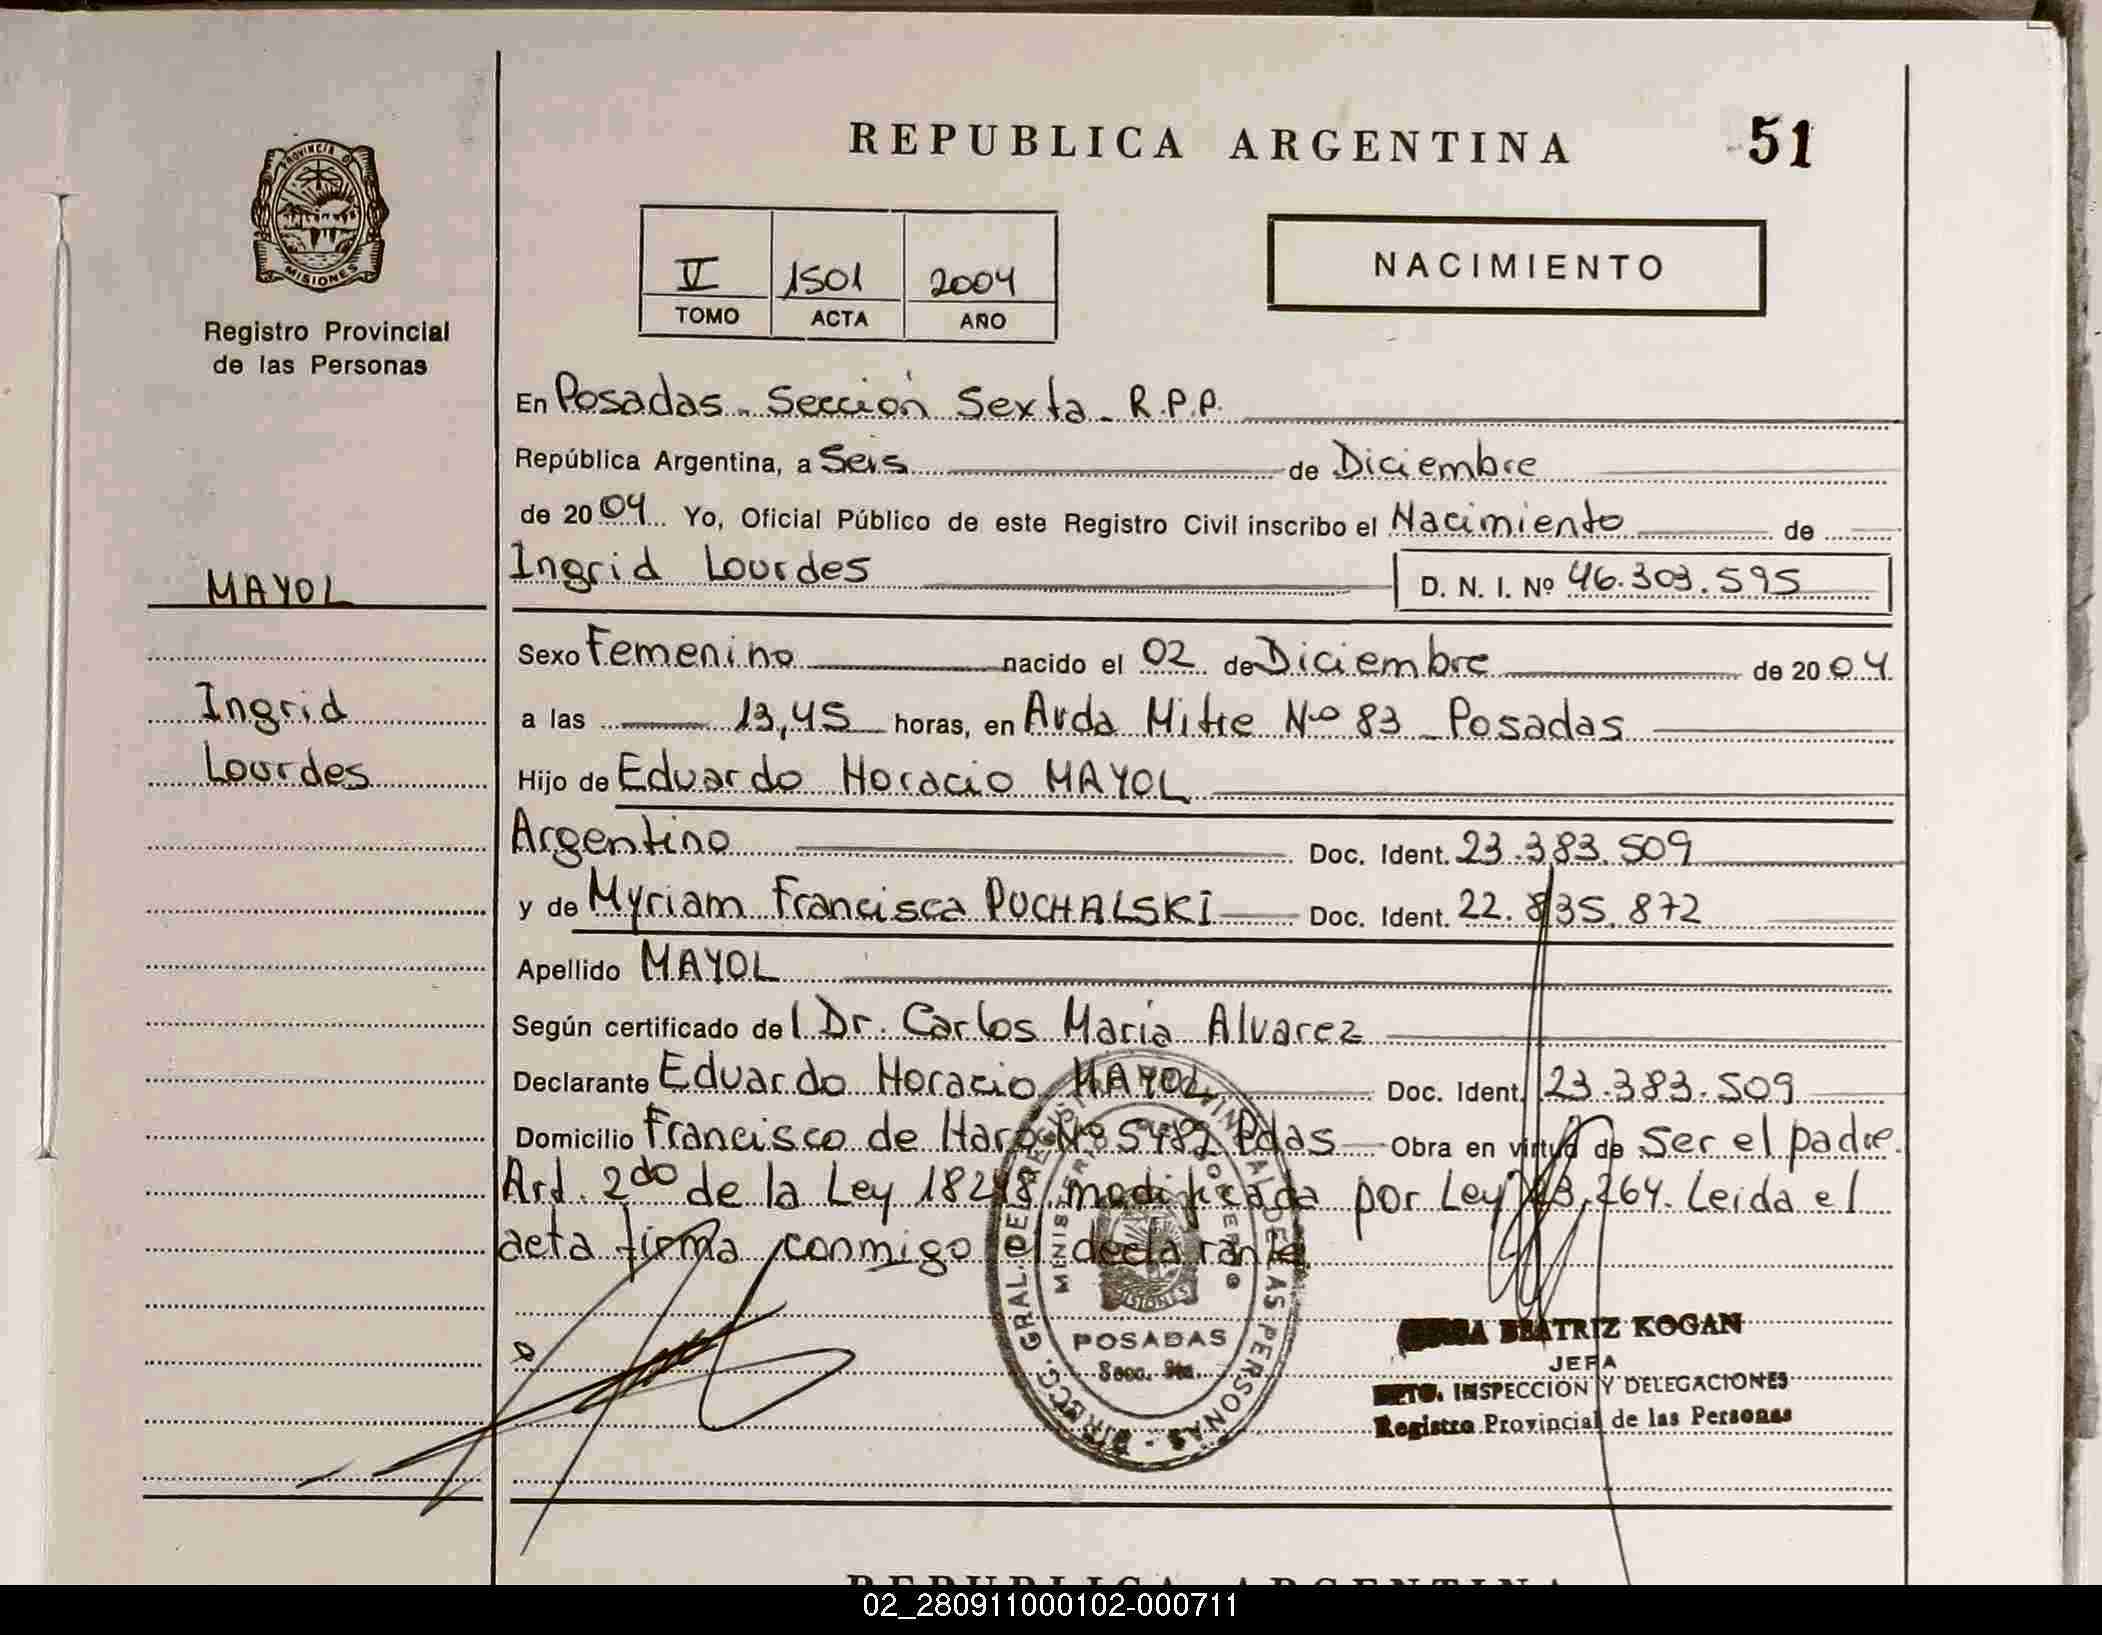 REPUBLICA ARGENTINA
51
PROVINCIA D
MISIONES
Registro Provincial
de las Personas
1501 2004
TOMO ACTA AÑO
NACIMIENTO
En Posadas - Sección Sexta - R.P.P.
República Argentina, a Seis de Diciembre
de 2004 Yo, Oficial Público de este Registro Civil inscribo el Nacimiento de
MAYOL
Ingrid Lourdes D. N. I. Nº 46.303.595
Sexo Femenino nacido el 02 de Diciembre de 2004
Ingrid
a las 13,45 horas, en Avda Mitre Nº 83 - Posadas
Lourdes
Hijo de Eduardo Horacio MAYOL
Argentino Doc. Ident. 23.383.509
y de Myriam Francisca PUCHALSKI Doc. Ident. 22.835.872
Apellido MAYOL
Según certificado del Dr. Carlos Maria Alvarez
Declarante Eduardo Horacio MAYOL Doc. Ident. 23.383.509
Domicilio Francisco de Haro Nº 5482 Pdas Obra en virtud de Ser el padre.
Art. 2do de la Ley 18248 modificada por Ley 23.264. Leida el
acta firma conmigo el declarante.
MINISTERIO DE GOBIERNO
MISIONES
POSADAS
Secc.
DIRECC. GRAL. DEL REGISTRO PROVINCIAL DE LAS PERSONAS
BEATRIZ KOGAN
JEFA
DPTO. INSPECCION Y DELEGACIONES
Registro Provincial de las Personas
REPUBLICA ARGENTINA
02_280911000102-000711